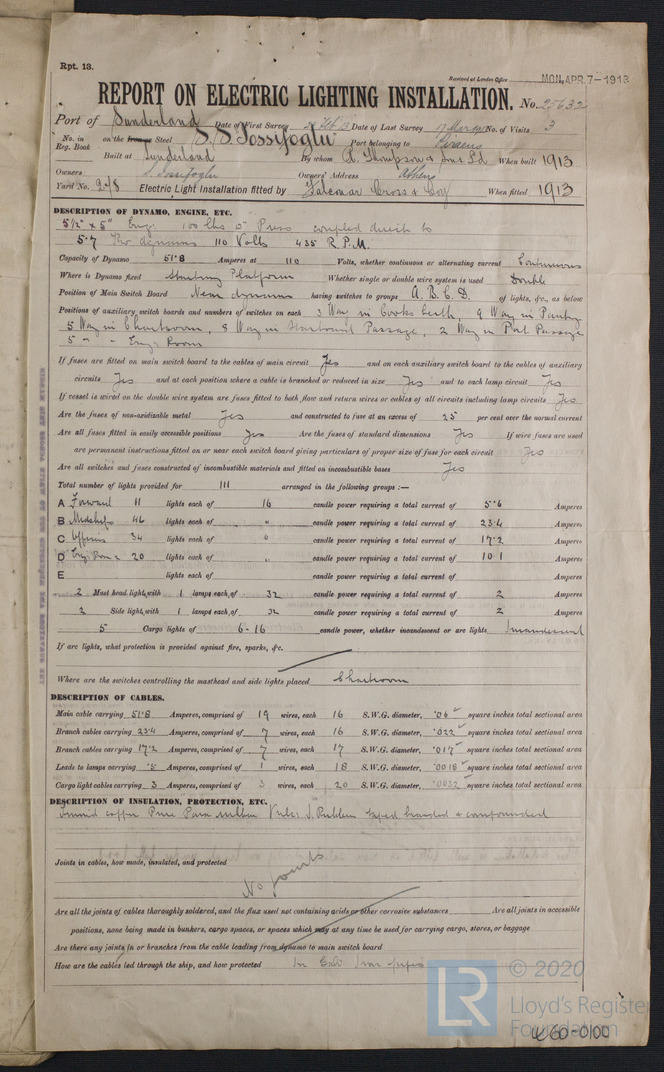 Rpt. 13.
Received at London Office MON. APR. 7-1913
REPORT ON ELECTRIC LIGHTING INSTALLATION. No. 25632
Port of Sunderland Date of First Survey Feb 13 Date of Last Survey 17 Mar No. of Visits 3
No. in Reg. Book on the Iron or Steel S.S. Iossifoglu Port belonging to Piraeus
Built at Sunderland By whom R. Thompson & Sons Ld When built 1913
Owners Iossifoglu Owners' Address Athens
Yard No. 278 Electric Light Installation fitted by Falconar Cross & Coy When fitted 1913
DESCRIPTION OF DYNAMO, ENGINE, ETC.
5½" x 5" Eng. 100 lbs Press coupled direct to
5.7 Kw dynamo 110 Volts 435 R.P.M.
Capacity of Dynamo 51.8 Amperes at 110 Volts, whether continuous or alternating current Continuous
Where is Dynamo fixed Starting Platform Whether single or double wire system is used Double
Position of Main Switch Board Near dynamo having switches to groups A. B. C. D. of lights, &c., as below
Positions of auxiliary switch boards and numbers of switches on each 3 Way in Cooks berth, 9 Way in Pantry
5 Way in Chartroom, 8 Way in Starboard Passage, 2 Way in Port Passage
5 " " Eng. Room
If fuses are fitted on main switch board to the cables of main circuit Yes and on each auxiliary switch board to the cables of auxiliary
circuits Yes and at each position where a cable is branched or reduced in size Yes and to each lamp circuit Yes
If vessel is wired on the double wire system are fuses fitted to both flow and return wires or cables of all circuits including lamp circuits Yes
Are the fuses of non-oxidizable metal Yes and constructed to fuse at an excess of 25 per cent over the normal current
Are all fuses fitted in easily accessible positions Yes Are the fuses of standard dimensions Yes If wire fuses are used
are permanent instructions fitted on or near each switch board giving particulars of proper size of fuse for each circuit Yes
Are all switches and fuses constructed of incombustible materials and fitted on incombustible bases Yes
Total number of lights provided for 111 arranged in the following groups :—
A Forward 11 lights each of 16 candle power requiring a total current of 5.6 Amperes
B Midships 46 lights each of " candle power requiring a total current of 23.4 Amperes
C Officers 34 lights each of " candle power requiring a total current of 17.2 Amperes
D Eng. Room 20 lights each of " candle power requiring a total current of 10.1 Amperes
E lights each of candle power requiring a total current of Amperes
2 Mast head light, with 1 lamps each of 32 candle power requiring a total current of 2 Amperes
2 Side light, with 1 lamps each of 32 candle power requiring a total current of 2 Amperes
5 Cargo lights of 6-16 candle power, whether incandescent or arc lights Incandescent
If arc lights, what protection is provided against fire, sparks, &c.
Where are the switches controlling the masthead and side lights placed Chartroom
DESCRIPTION OF CABLES.
Main cable carrying 51.8 Amperes, comprised of 19 wires, each 16 S.W.G. diameter, .06 square inches total sectional area
Branch cables carrying 23.4 Amperes, comprised of 7 wires, each 16 S.W.G. diameter, .022 square inches total sectional area
Branch cables carrying 17.2 Amperes, comprised of 7 wires, each 17 S.W.G. diameter, .017 square inches total sectional area
Leads to lamps carrying .5 Amperes, comprised of 1 wires, each 18 S.W.G. diameter, .0018 square inches total sectional area
Cargo light cables carrying 3 Amperes, comprised of 3 wires, each 20 S.W.G. diameter, .0032 square inches total sectional area
DESCRIPTION OF INSULATION, PROTECTION, ETC.
Tinned copper Pure Para rubber Vulc. I. Rubber taped braided & compounded
Joints in cables, how made, insulated, and protected
No joints
Are all the joints of cables thoroughly soldered, and the flux used not containing acids or other corrosive substances Are all joints in accessible
positions, none being made in bunkers, cargo spaces, or spaces which may at any time be used for carrying cargo, stores, or baggage
Are there any joints in or branches from the cable leading from dynamo to main switch board
How are the cables led through the ship, and how protected In Galv. Iron pipes
LR © 2020
Lloyd's Register
Foundation
W60-0100